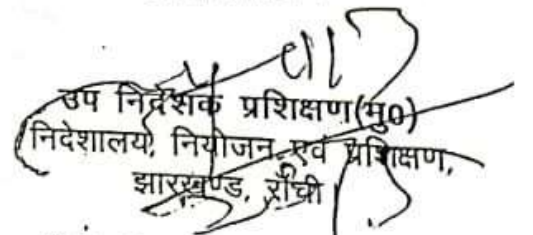 उप निर्देशक प्रशिक्षण(मु0)
निदेशालय, नियोजन एवं प्रशिक्षण,
झारखण्ड, राँची